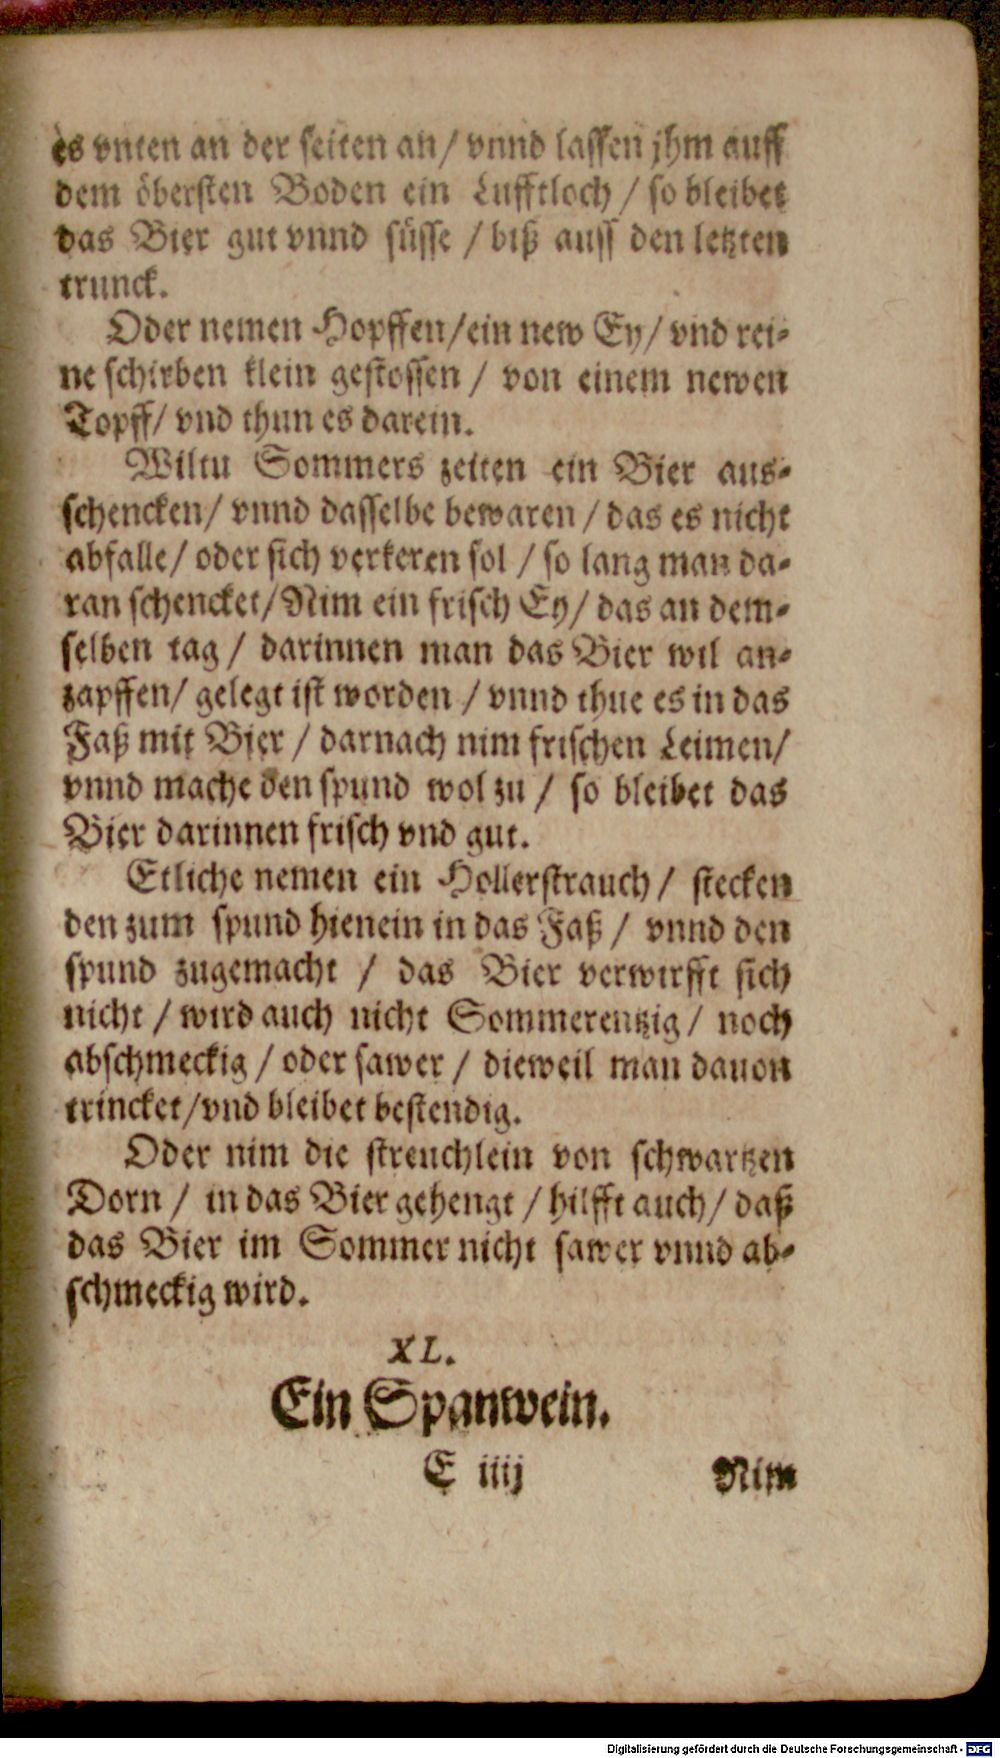 es vnten an der seiten an/ vnnd lassen jhm auff
dem öbersten Boden ein Lufftloch / so bleibet
das Bier gut vnnd süsse / biß auff den letzten
trunck.
Oder nemen Hopffen/ein new Ey/ vnd rei-
ne schirben klein gestossen / von einem newen
Topff/ vnd thun es darein.
Wiltu Sommers zeiten ein Bier aus-
schencken/ vnnd dasselbe bewaren / das es nicht
abfalle/ oder sich verkeren sol / so lang man da-
ran schencket/Nim ein frisch Ey/ das an dem-
selben tag / darinnen man das Bier wil an-
zapffen/ gelegt ist worden / vnnd thue es in das
Faß mit Bier / darnach nim frischen Leimen/
vnnd mache den spund wol zu / so bleibet das
Bier darinnen frisch vnd gut.
Etliche nemen ein Hollerstrauch/ stecken
den zum spund hienein in das Faß / vnnd den
spund zugemacht / das Bier verwirfft sich
nicht / wird auch nicht Sommerentzig/ noch
abschmeckig / oder sawer / dieweil man dauon
trincket/vnd bleibet bestendig.
Oder nim die streuchlein von schwartzen
Dorn / in das Bier gehengt / hilfft auch/ daß
das Bier im Sommer nicht sawer vnnd ab-
schmeckig wird.
XL.
Ein Spanwein.
E iiij Nim
Digitalisierung gefördert durch die Deutsche Forschungsgemeinschaft - DFG